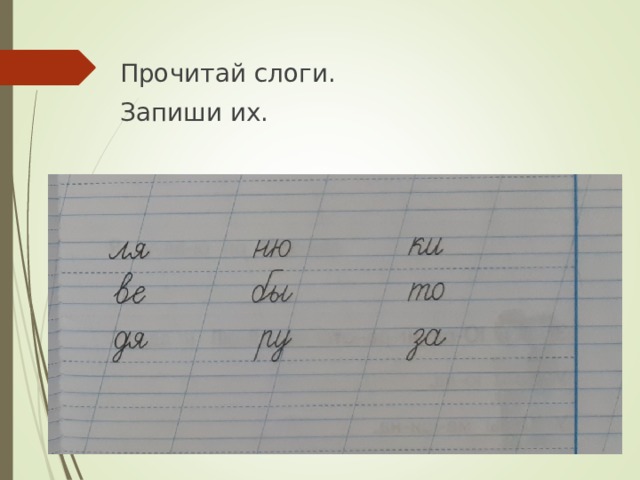 Прочитай слоги.
Запиши их.
ля ню ки
ве бы то
дя ру за